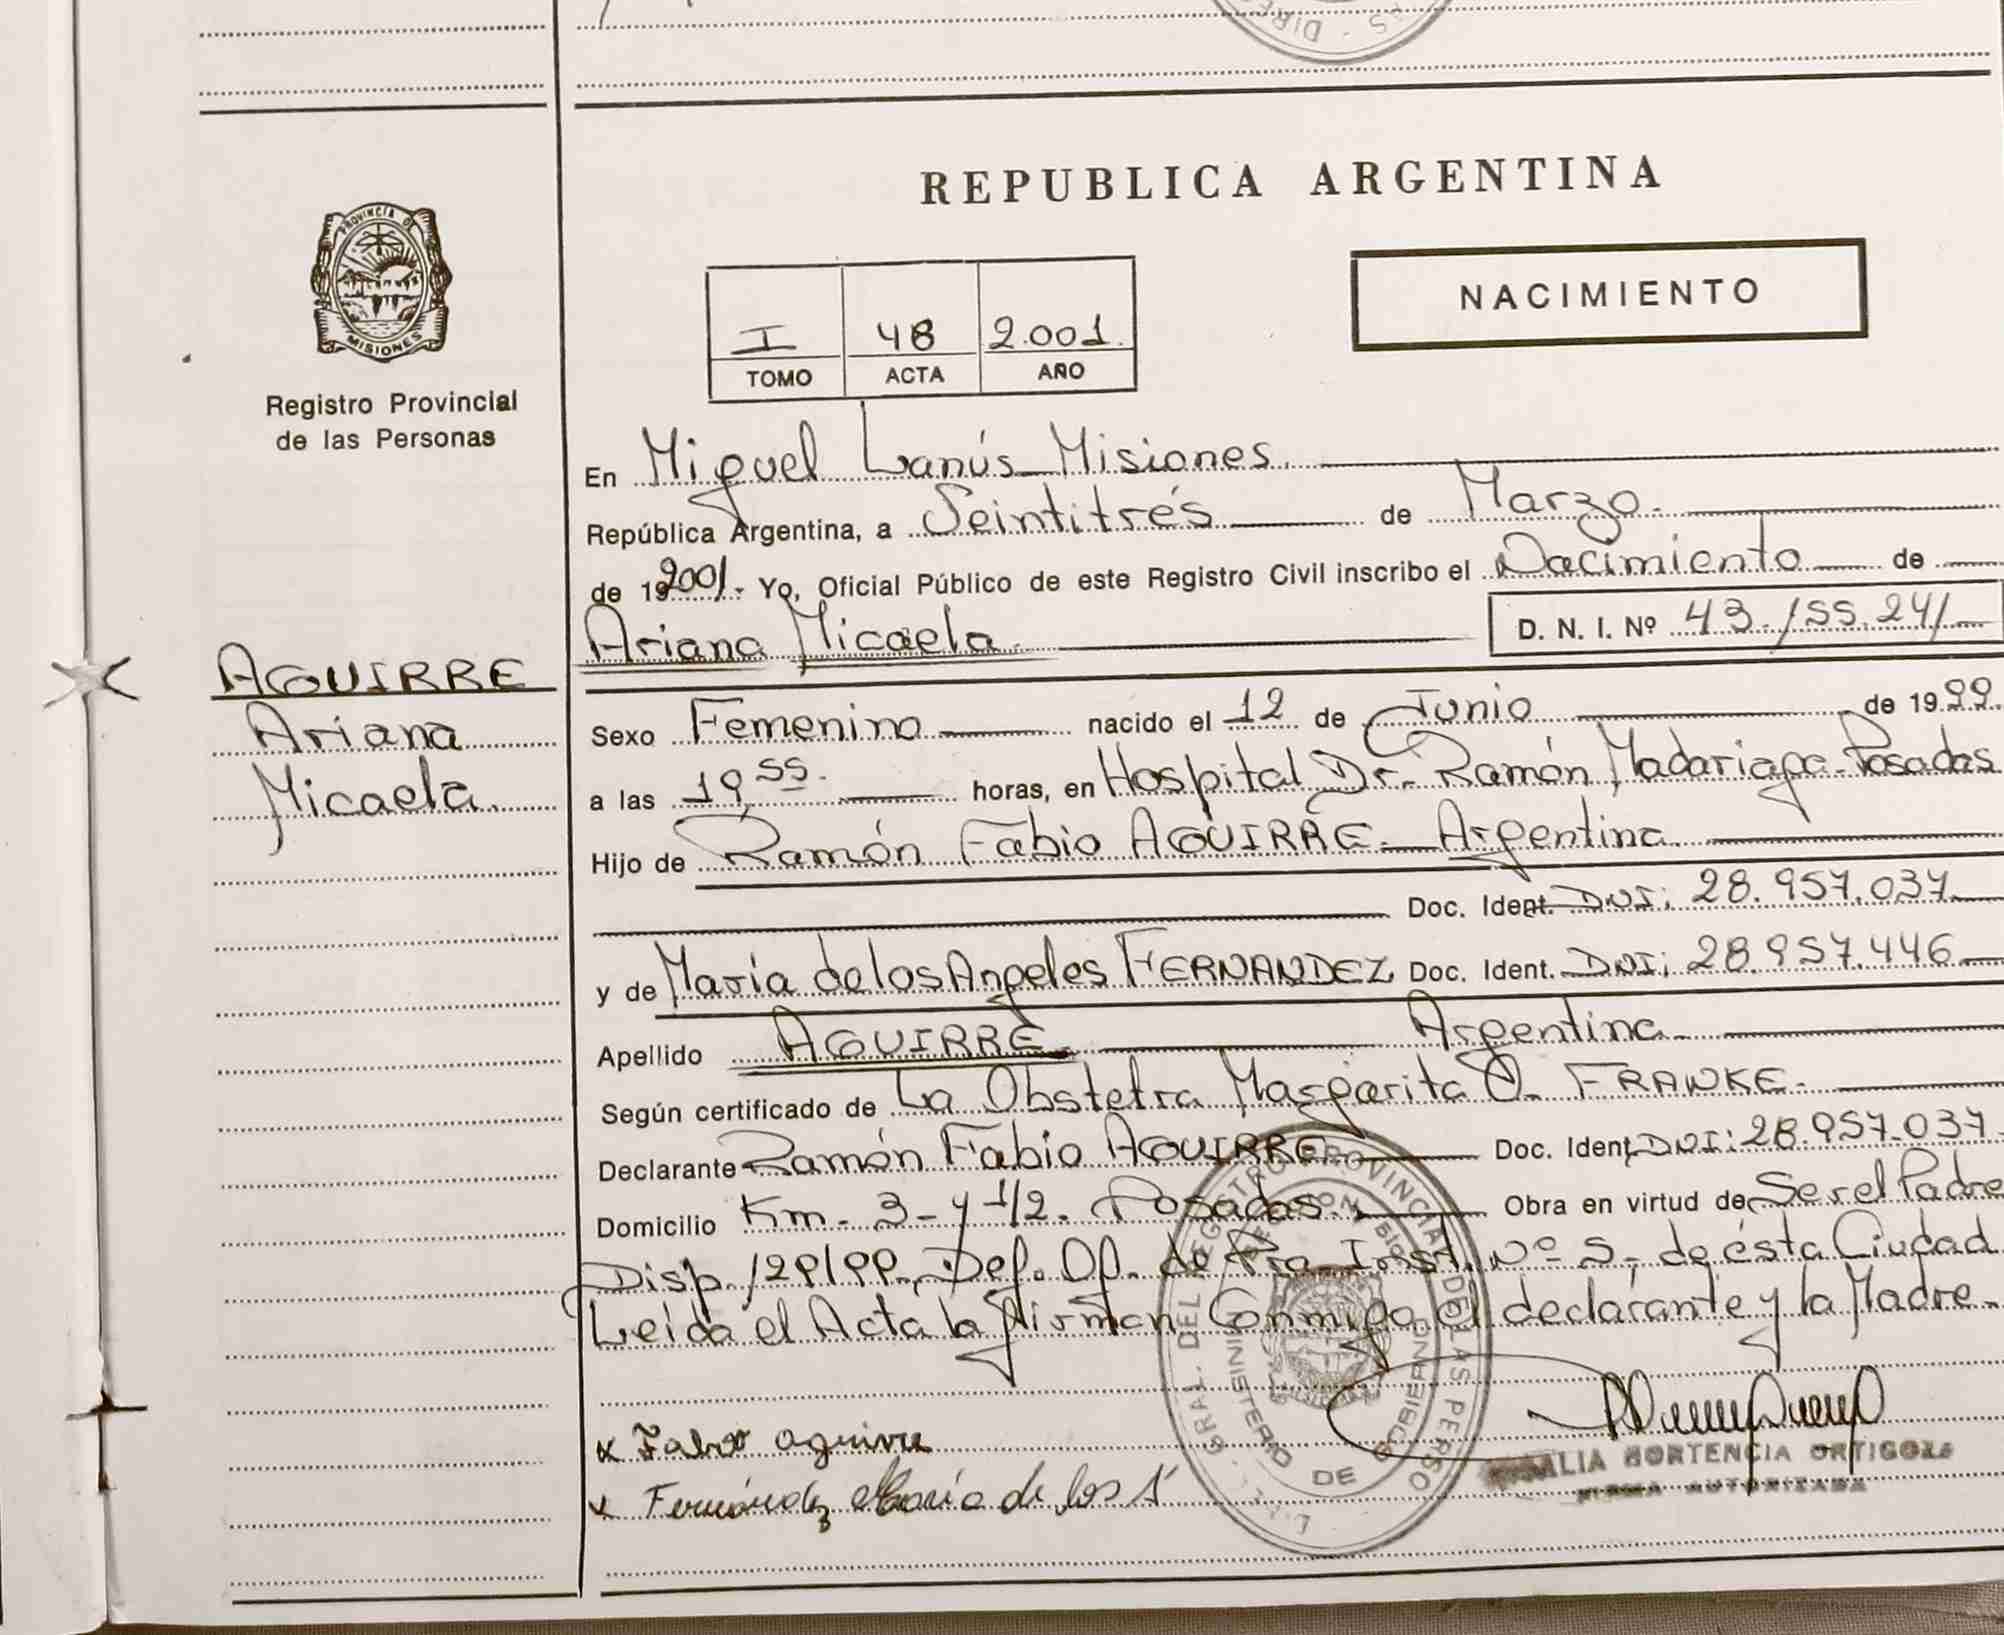 REPUBLICA ARGENTINA
NACIMIENTO
I 48 2.001.
TOMO ACTA AÑO
PROVINCIA DE
MISIONES
Registro Provincial
de las Personas
AGUIRRE
Ariana
Micaela.
En Miguel Lanús Misiones.
República Argentina, a Seintitrés de Marzo.
de 19 2001.- Yo, Oficial Público de este Registro Civil inscribo el Nacimiento de
Ariana Micaela. D. N. I. Nº 43.155.241
Sexo Femenino nacido el 12 de Junio de 1999.
a las 19,55. horas, en Hospital Dr. Ramón Madariaga-Posadas
Hijo de Ramón Fabio AGUIRRE- Argentina
Doc. Ident. DNI: 28.957.037
y de María de los Angeles FERNANDEZ Doc. Ident. DNI: 28.957.446
Apellido AGUIRRE Argentina
Según certificado de La Obstetra Margarita O. FRANKE-
Declarante Ramón Fabio AGUIRRE Doc. Ident. DNI: 28.957.037
Domicilio Km- 3- y 1/2- Posadas. Obra en virtud de Ser el Padre
Disp. 129/99, Def. Of. de Pra Inst. Nº 5, de ésta Ciudad
Leida el Acta la firman Conmigo el declarante y la Madre.
x Fabio aguirre
x Fernández María de los A
GRAL. DEL REGISTRO PROVINCIAL DE LAS PERSO
MINISTERIO DE GOBIERNO
HORTENCIA ORTIGOZA
FIRMA AUTORIZADA